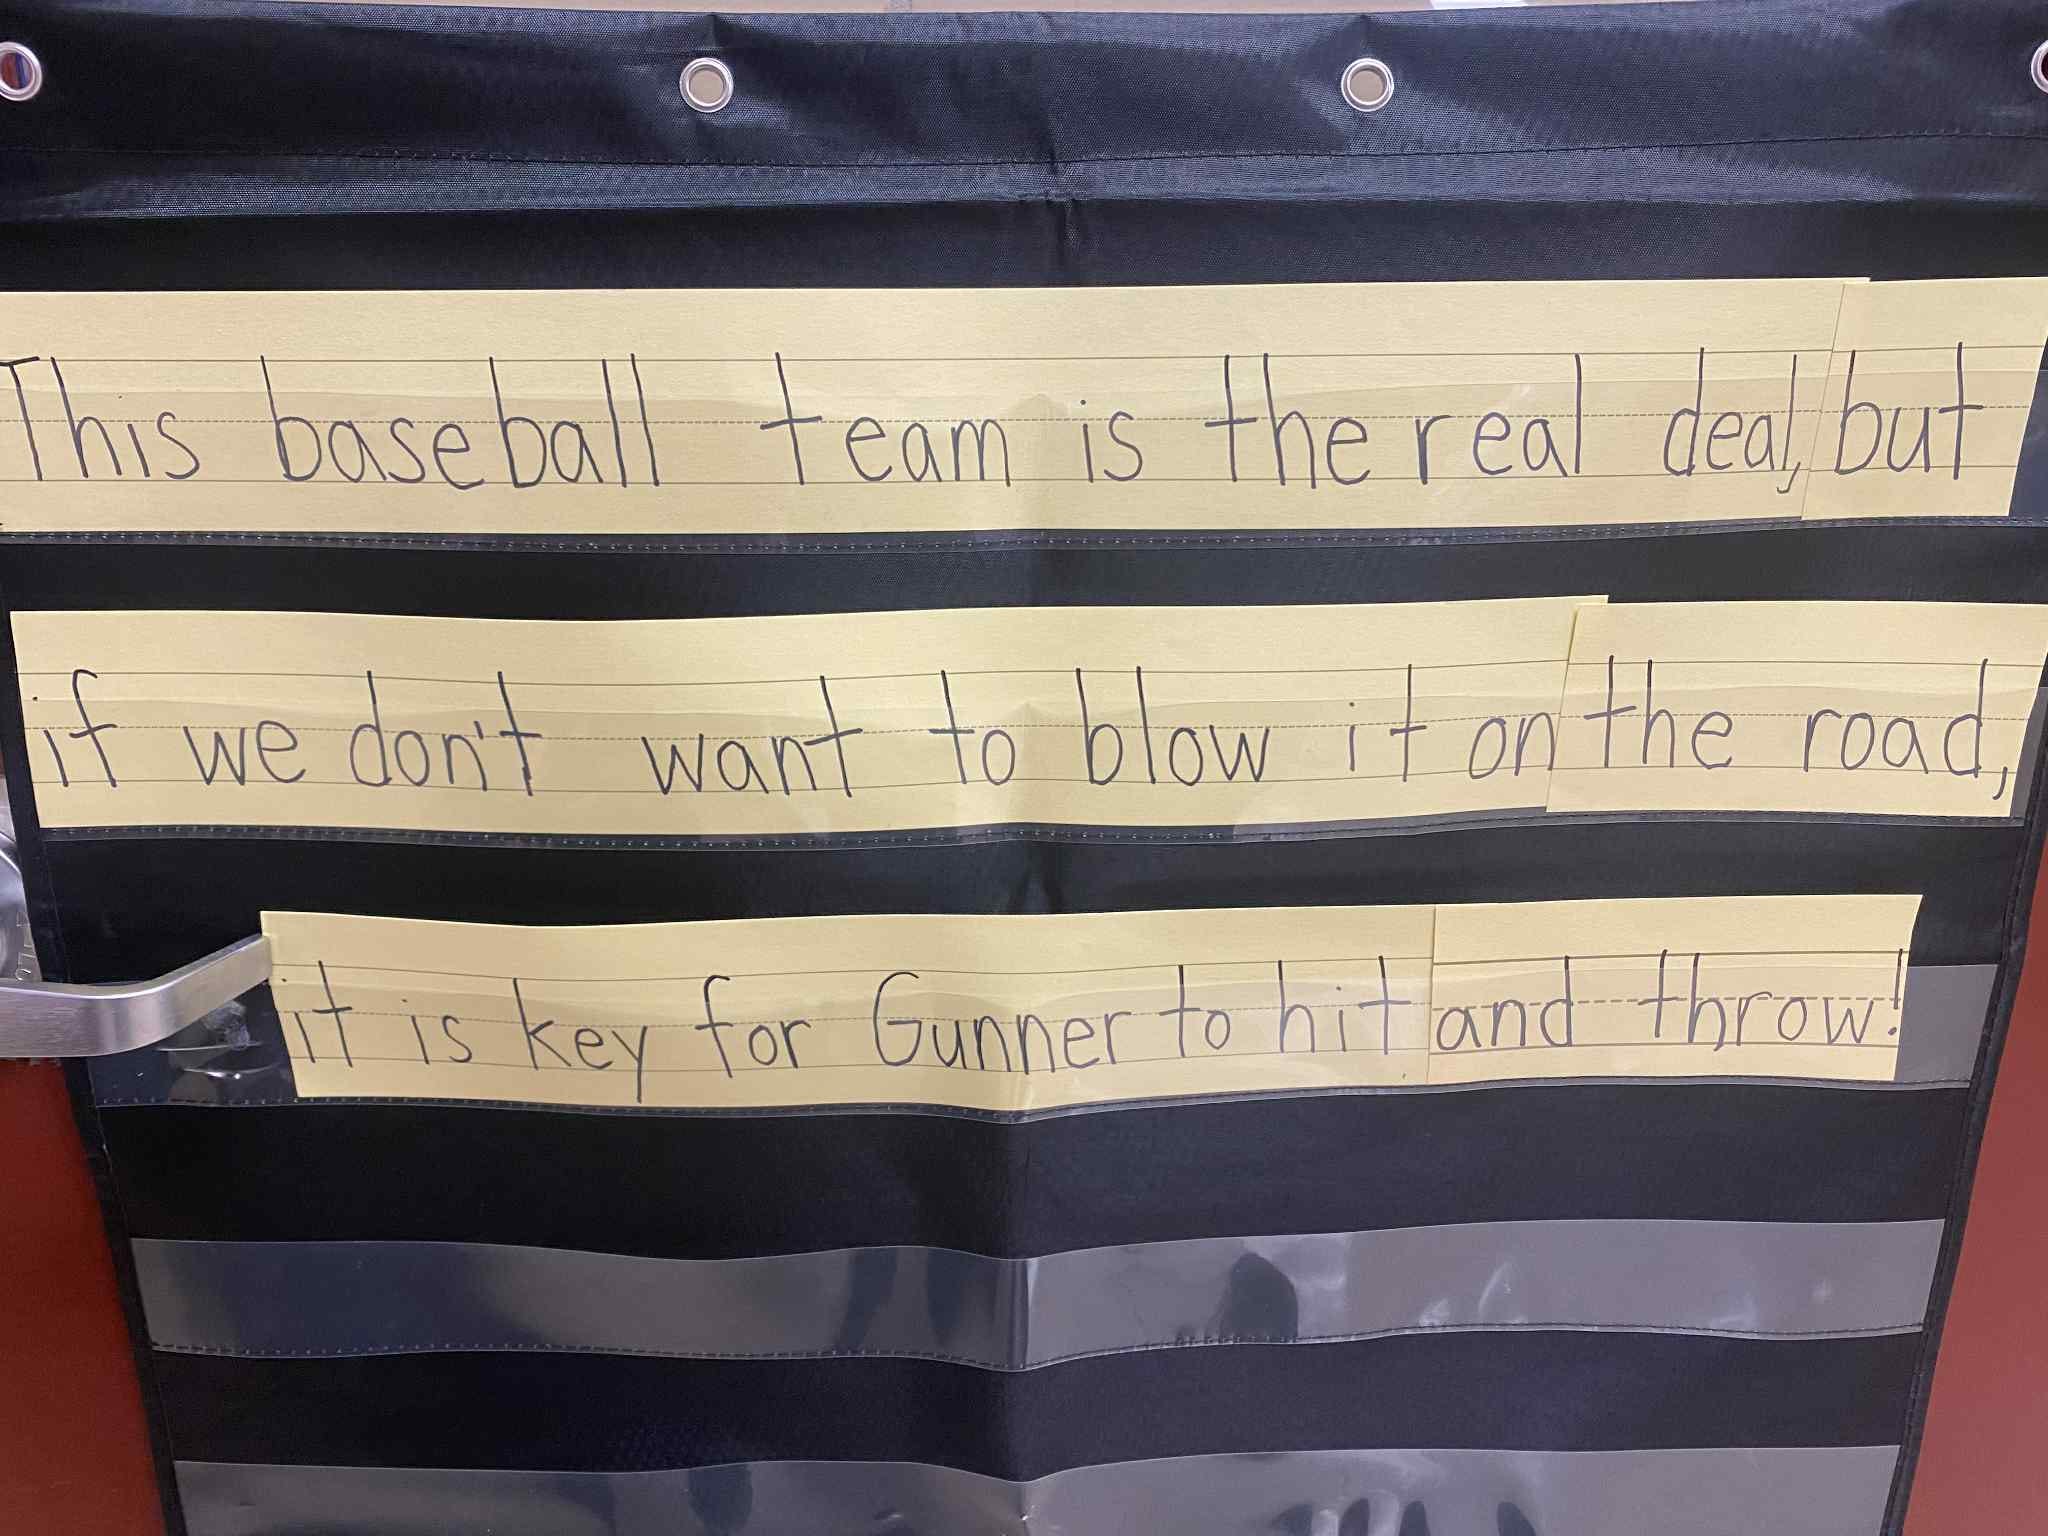 This baseball team is the real deal, but
if we don't want to blow it on the road,
it is key for Gunner to hit and throw!